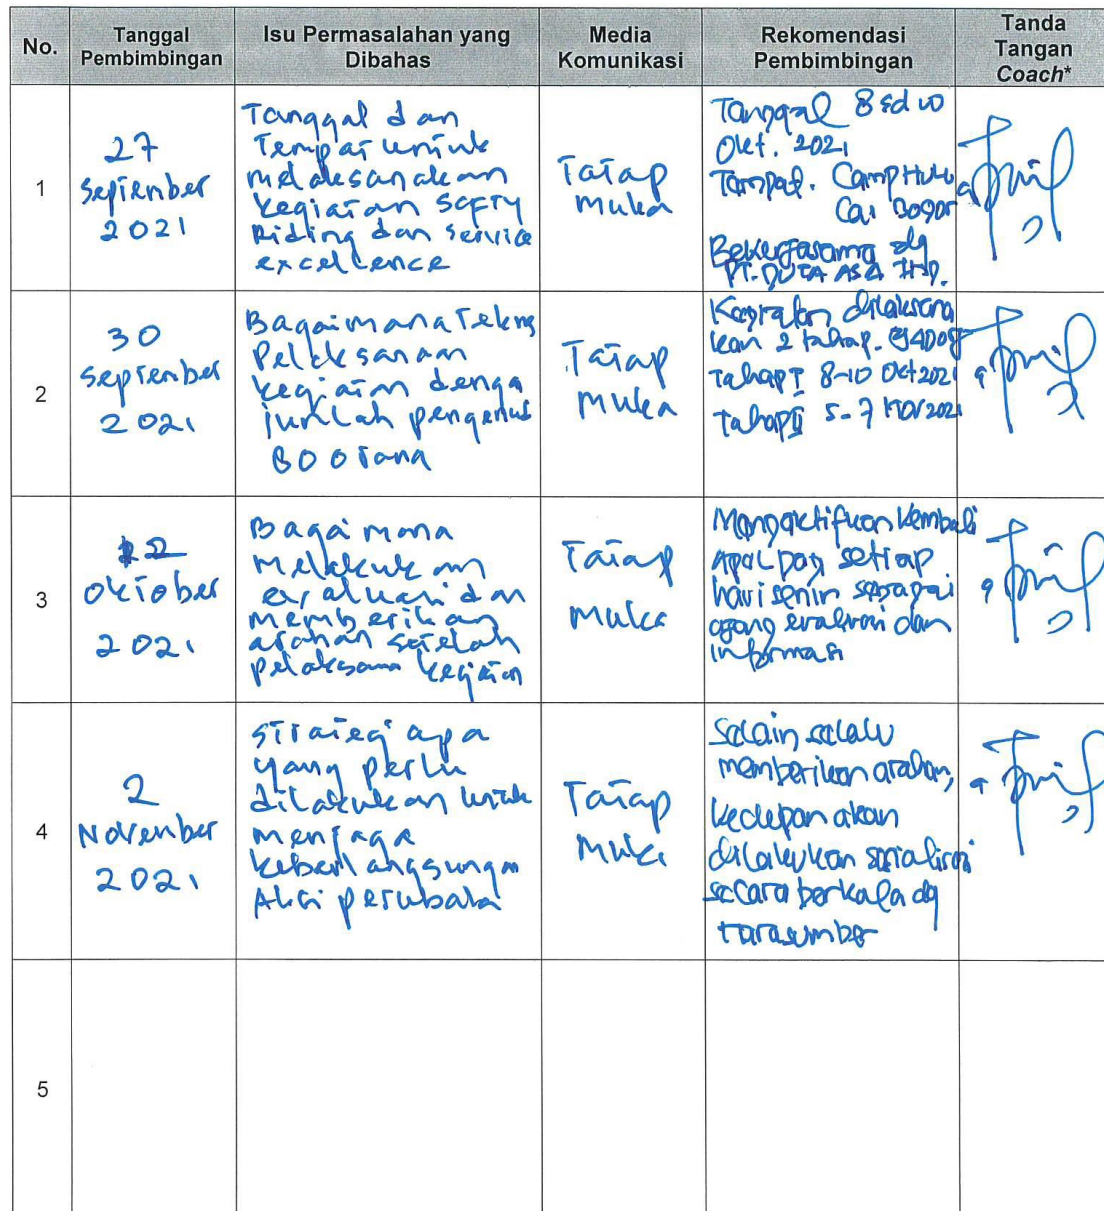 No.
Tanggal
Pembimbingan
Isu Permasalahan yang
Dibahas
Media
Komunikasi
Rekomendasi
Pembimbingan
Tanda
Tangan
Coach*
1
27
September
2021
Tanggal dan
Tempat untuk
melaksanakan
kegiatan Safty
Riding dan service
excellence
Tatap
muka
Tanggal 8 sd 10
Okt. 2021
Tempat. Camp Hulu
Cai Bogor
Bekerjasama dg
PT. DUTA ASA
2
30
September
2021
Bagaimana Tekns
Pelaksanaan
kegiatan denga
jumlah pengemudi
80 orang
Tatap
muka
Kegiatan dilaksana
kan 2 tahap.
Tahap I 8-10 Okt 2021
Tahap II 5-7 Nov 2021
3
Oktober
2021
Bagaimana
Melakukan
evaluasi dan
memberikan
arahan setelah
pelaksana kegiatan
Tatap
Muka
Mengaktifkan kembali
apel pagi setiap
hari senin sebagai
ajang evaluasi dan
informasi
4
2
November
2021
Strategi apa
yang perlu
dilakukan untuk
menjaga
keberlangsungan
Aksi perubaha
Tatap
Muka
Selain selalu
memberikan arahan,
kedepan akan
dilakukan sosialisasi
secara berkala dg
5